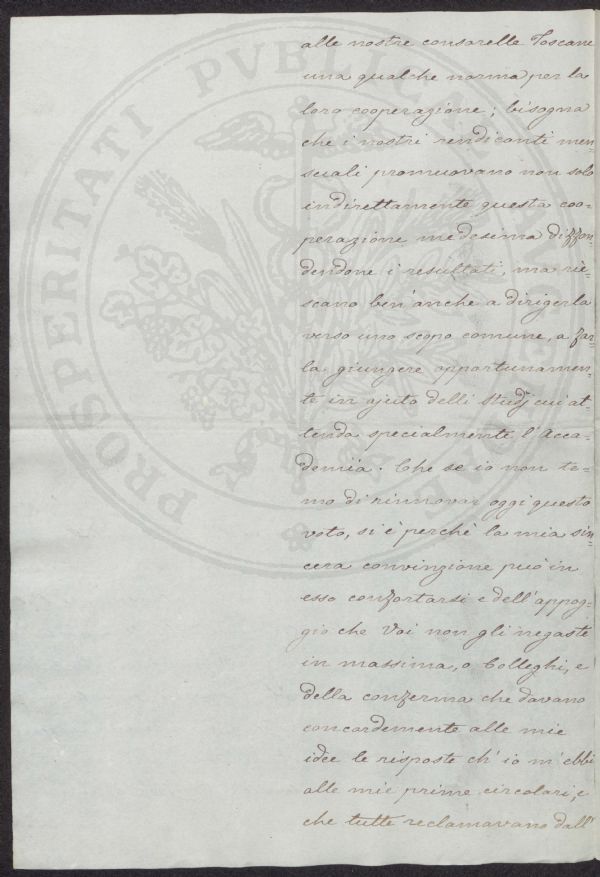 alle nostre consorelle Toscane
una qualche norma per la
loro cooperazione; bisogna
che i nostri rendiconti men=
suali promuovano non solo
indirettamente questa coo=
perazione medesima diffon=
dendone i resultati, ma rie=
scano ben'anche a dirigerla
verso uno scopo comune, a far=
la giungere opportunamen=
te in ajuto delli Studj cui at=
tende specialmente l'Acca=
demia. Che se io non te=
mo di rinnovar oggi questo
voto, si è perchè la mia sin=
cera convinzione può in
esso confortarsi e dell'appog=
gio che Voi non gli negaste
in massima, o Colleghi, e
della conferma che davano
concordemente alle mie
idee le risposte ch'io m'ebbi
alle mie prime circolari, e
che tutte reclamavano dall'
PROSPERITATI PUBLICAE AUGENDAE